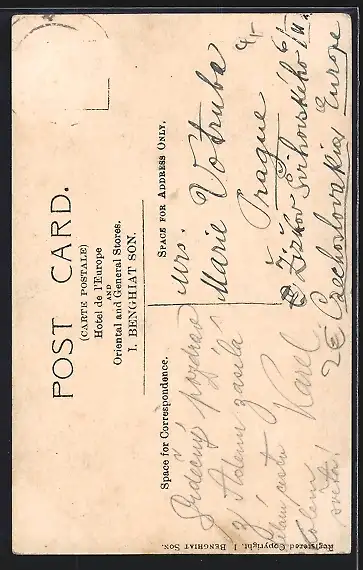 POST CARD.
(CARTE POSTALE)
Hotel de l'Europe
AND
Oriental and General Stores.
I. BENGHIAT SON.
Space for Correspondence.
SPACE FOR ADDRESS ONLY.
Srdečný pozdrav
z Adenu zasílá
cestu
Karel
kolem
světa!
Mrs.
Marie Votruba
Prague
Žižkov
Czechoslovakia Europe
Registered Copyright, I BENGHIAT SON.